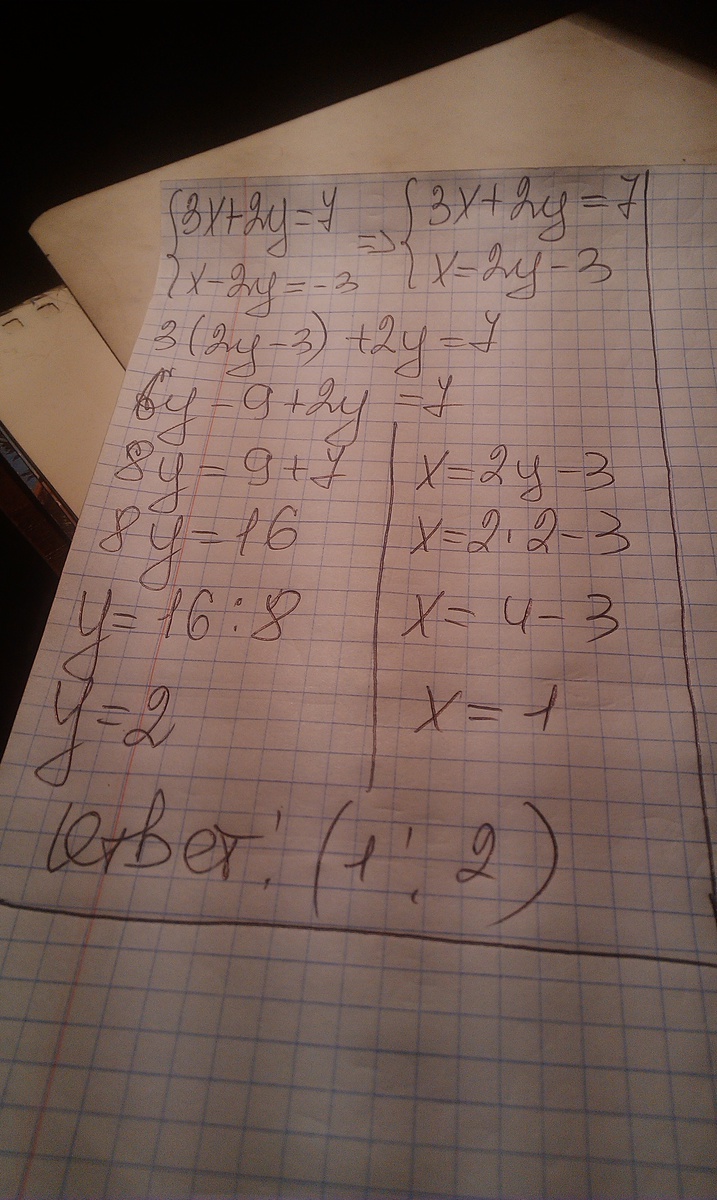 {3x+2y=7 => {3x+2y=7
{x-2y=-3 {x=2y-3
3(2y-3)+2y=7
6y-9+2y=7
8y=9+7
8y=16
y=16:8
y=2
x=2y-3
x=2·2-3
x=4-3
x=1
Ответ: (1; 2)